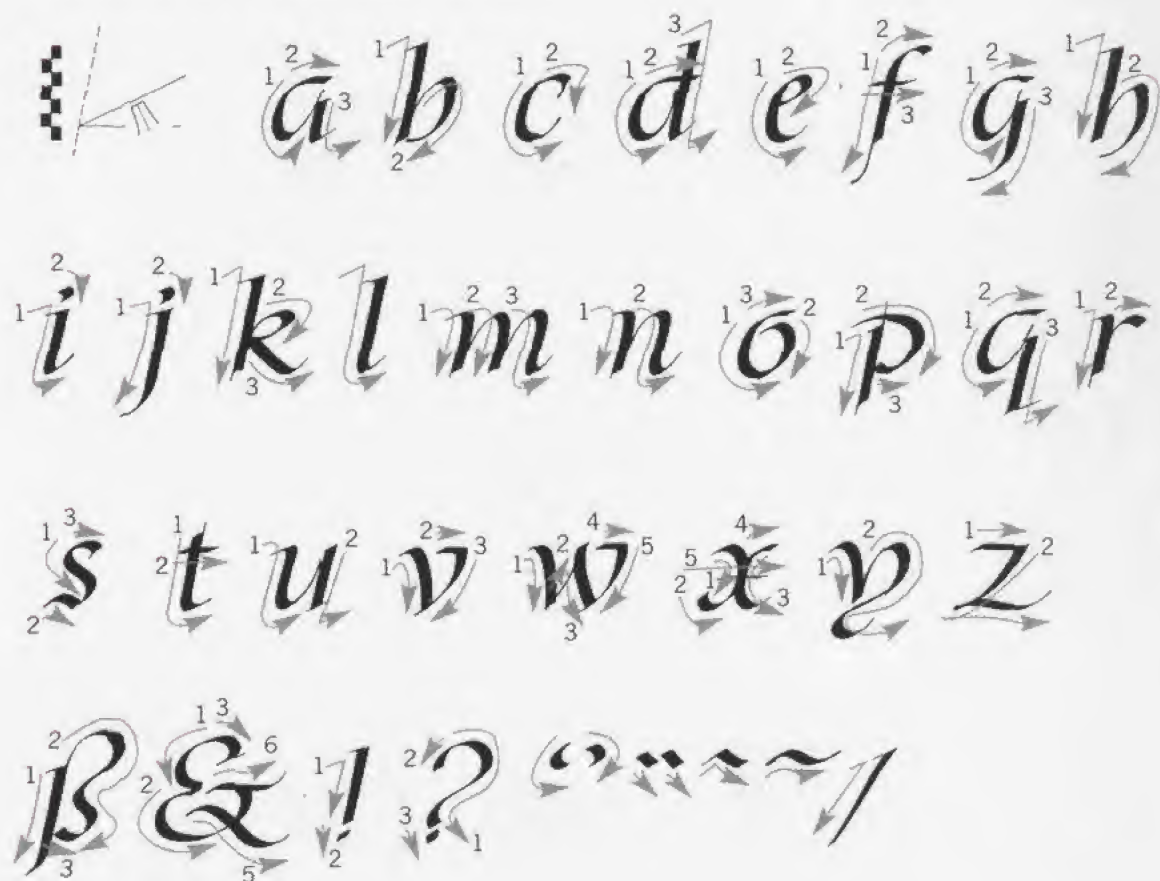 a b c d e f g h
i j k l m n o p q r
s t u v w x y z
ß & ! ? ° ¨ ~ ~ /